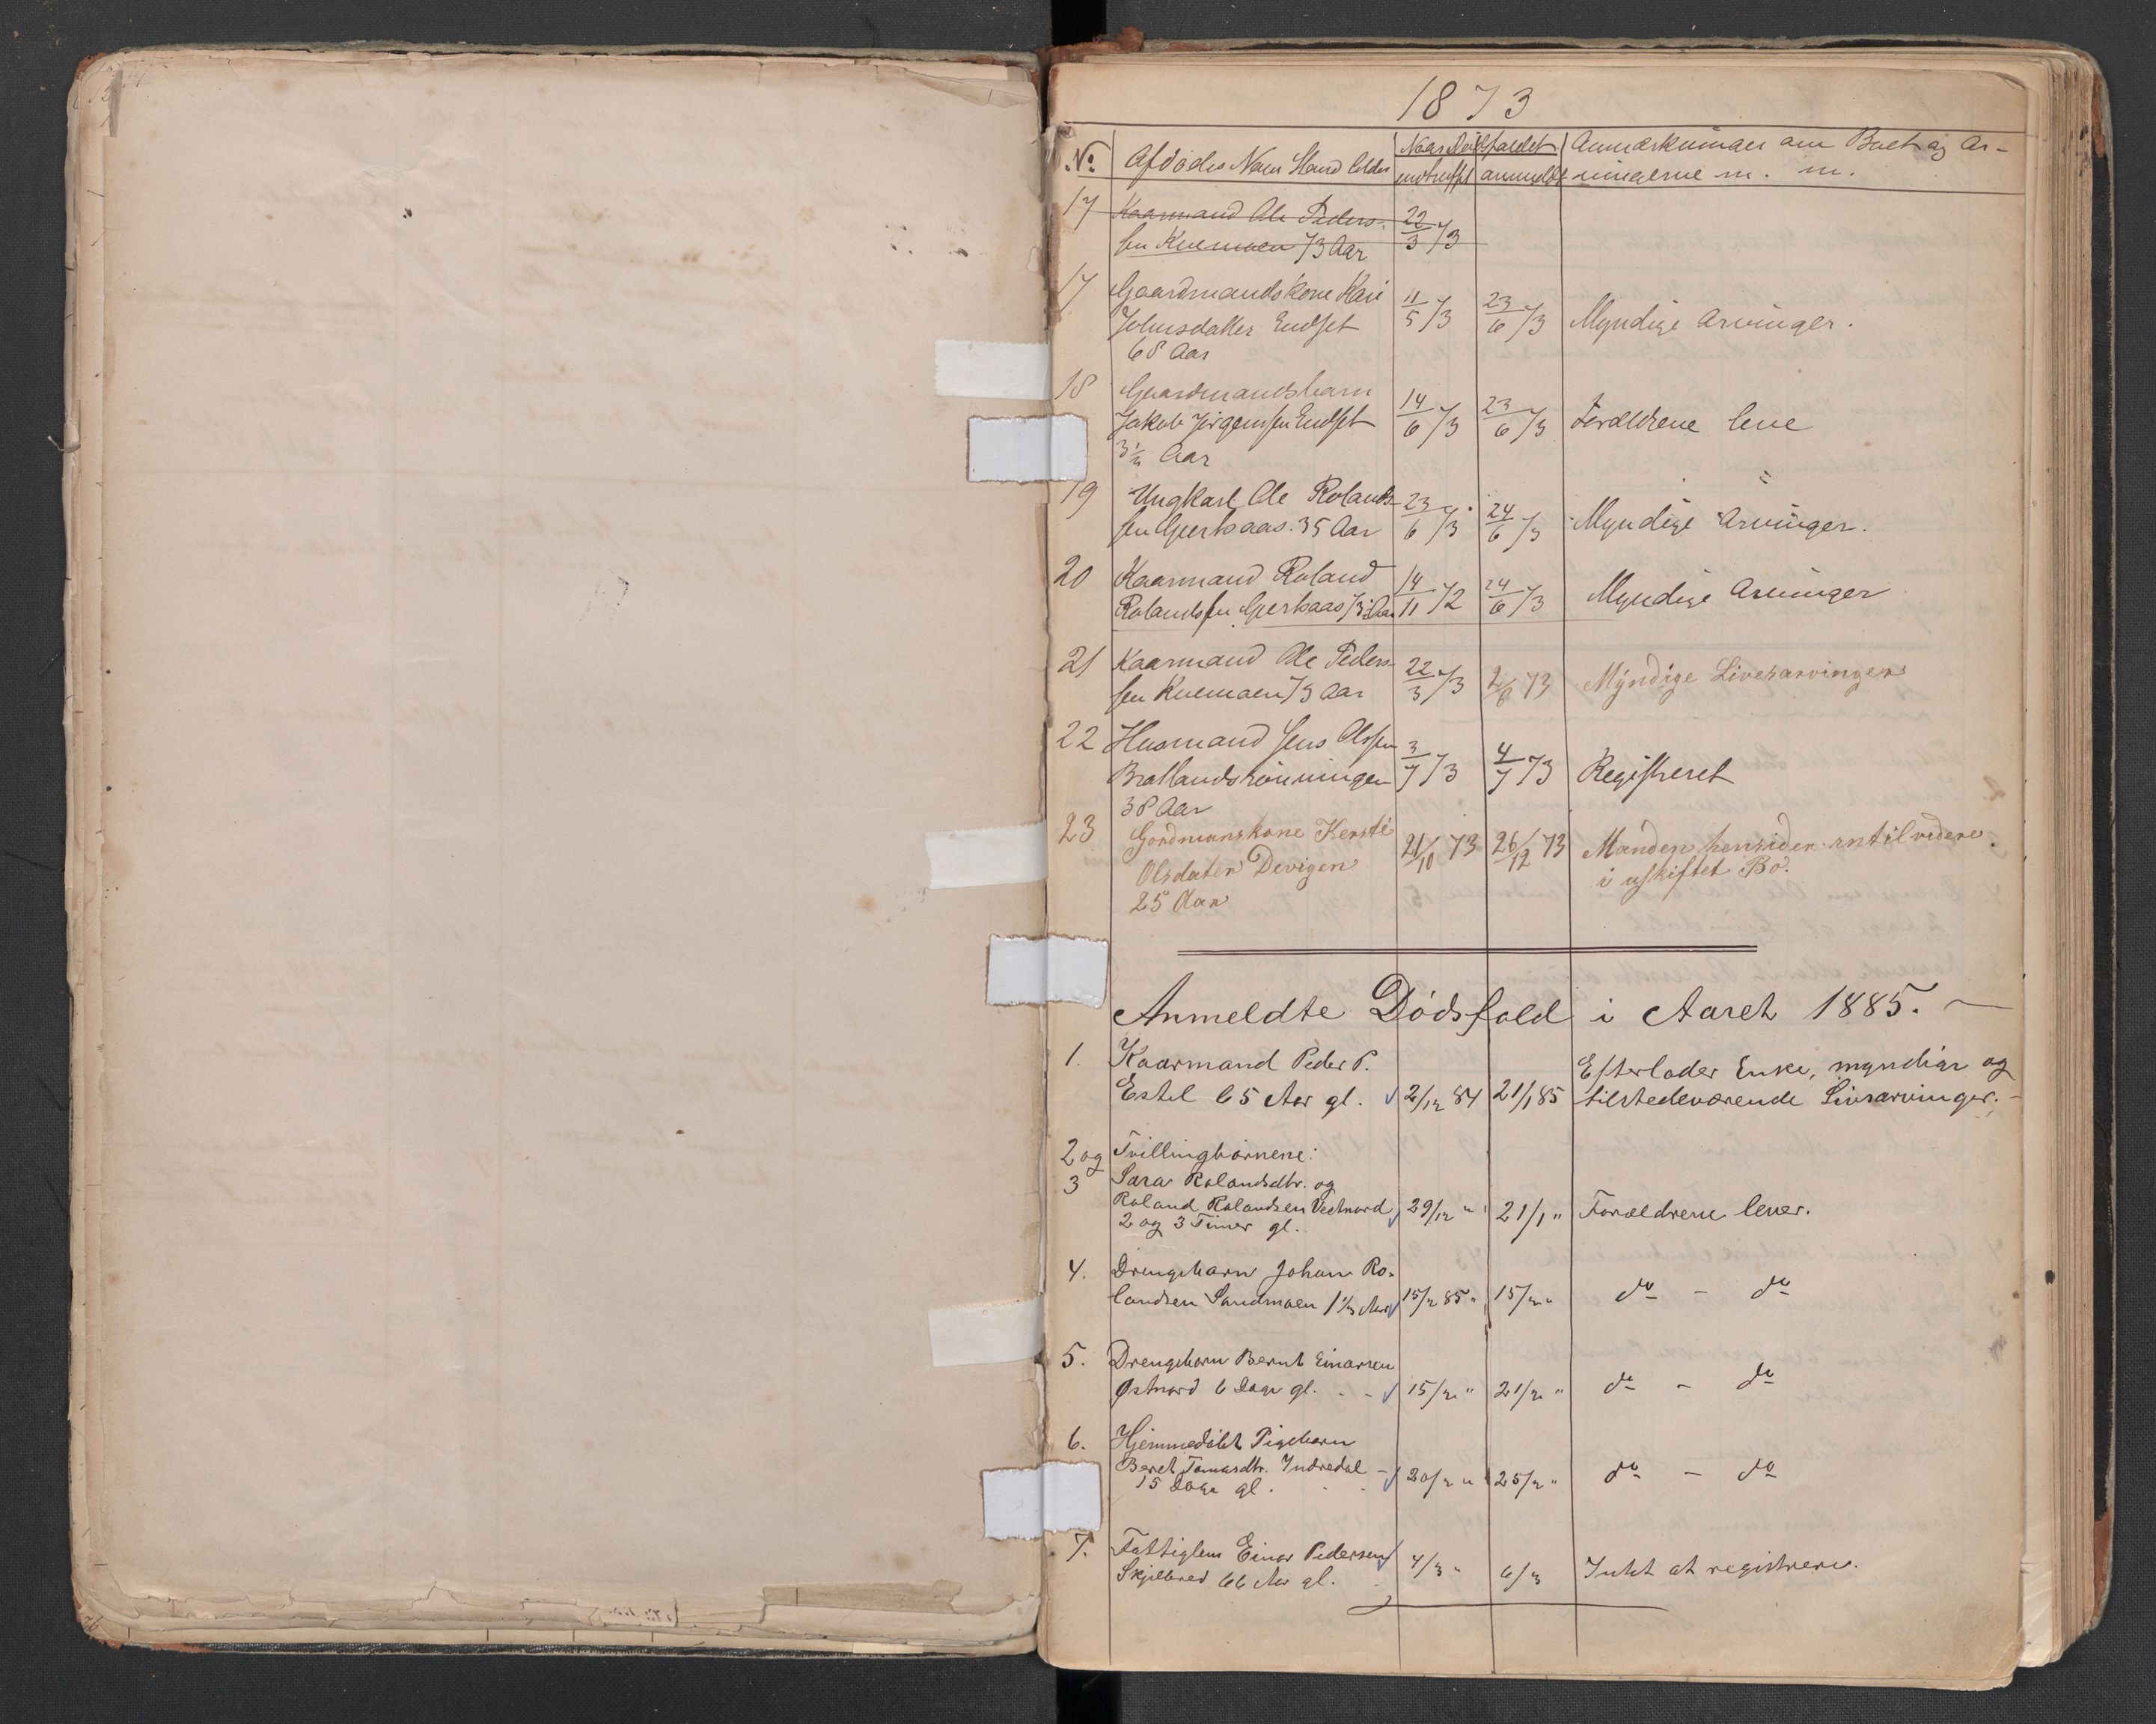 1873
No. Afdødes Navn Stand Alder Naar Dødsfaldet Anmærkninger om Boet og Ar-
indtruffet anmeldt vingerne m. m.
17 Kaarmand Ole Peders-
sen Kvemoen 73 Aar 22/3 73
17 Gaardmandskone Kari
Johnsdatter Endset 11/5 73 23/6 73 Myndige Arvinger.
68 Aar
18 Gaardmandsbarn
Jakob Jørgenssen Endset 14/6 73 23/6 73 Forældrene leve
3½ Aar
19 Ungkarl Ole Rolands-
sen Gjerkaas. 35 Aar 23/6 73 24/6 73 Myndige Arvinger.
20 Kaarmand Roland
Rolandssen Gjerkaas Aar 14/11 72 24/6 73 Myndige Arvinger
21 Kaarmand Ole Peders-
sen Kvemoen 73 Aar 22/3 73 2/6 73 Myndige Livsarvinger
22 Husmand Jens Olssen
Brøllandsrønningen 3/7 73 4/7 73 Registreret
38 Aar
23 Gordmanskone Kersti
Olsdater Devigen 21/10 73 26/12 73 Manden hensider intil videre
i uskiftet Bo.
25 Aar
Anmeldte Dødsfald i Aaret 1885.
1. Kaarmand Peder P.
Estil 65 Aar gl. 2/12 84 21/1 85 Efterlader Enke, myndige og
tilstedeværende Livsarvinger.
2 og Tvillingbørnene:
3 Sara Rolandsdtr. og
Roland Rolandsen Vestnord 29/12 " 21/1 " Forældrene lever.
2 og 3 Timer gl.
4. Drengebarn Johan Ro-
landsen Sandmoen 1½ Aar 15/2 85 " 15/2 " do - do
5. Drengebarn Bernt Einarsen
Østnord 6 Dage gl. - - 15/2 " 21/2 " do - do
6. Hjemmedøbt Pigebarn
Beret Tomasdtr. Indredal - 20/2 " 25/2 " do - do
15 Dage gl.
7. Fattiglem Einar Pedersen
Skjelbred 66 Aar gl. 4/3 " 6/3 Intet at registrere.